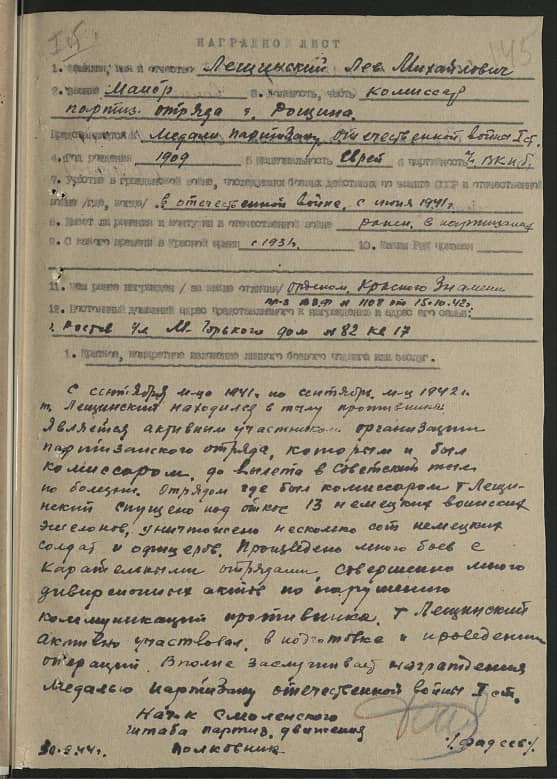 I/5
145
НАГРАДНОЙ ЛИСТ
1. Фамилия, имя и отчество Лещинский Лев Михайлович
2. Звание Майор 3. Должность, часть Комиссар
партиз. отряда т. Рощина.
Представляется к Медали партизану отечественной войны I ст.
4. Год рождения 1909 5. Национальность Еврей 6. Партийность Чл. ВКП/б
7. Участие в гражданской войне, последующих боевых действиях по защите СССР и отечественной
войне /где, когда/ в отечественной войне, с июня 1941г.
8. Имеет ли ранения и контузии в отечественной войне ранен. в партизанах
9. С какого времени в Красной армии с 1931г. 10. Каким РВК призван
11. Чем ранее награжден / за какие отличия/ орденом, Красного Знамени
пр-з № 1108 от 15.10.42г.
12. Постоянный домашний адрес представляемого к награждению и адрес его семьи:
г. Ростов ул М. Горького дом № 82 кв 17
1. Краткое, конкретное изложение личного боевого подвига или заслуг.
С сентября м-ца 1941г. по сентябрь м-ц 1942г.
т. Лещинский находился в тылу противника
Является активным участником организации
партизанского отряда, которым и был
комиссаром, до вылета в Советский тыл
по болезни. Отрядом где был комиссаром т Лещи-
нский спущено под откос 13 немецких воинских
эшелонов, уничтожено несколко сот немецких
солдат и офицеров. Произведено много боев с
карательными отрядами, совершено много
диверсионных актов по нарушению
коммуникаций противника. т Лещинский
активно участвовал, в подготовке и проведении
операций. Вполне заслуживает награждения
Медалью партизану отечественной войны I ст.
Нач-к Смоленского
штаба партиз. движения
Полковник /Фадеев/
30.5.44г.